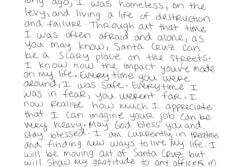 long ago, I was homeless, on the
levy, and living a life of destruction
and failure. Through out that time
I was often afraid and alone, as
you may know, Santa Cruz can
be a scary place on the streets.
I know now the impact you've made
on my life. Everytime you were
around, I was safe. Everytime I
was in fear, you weren't far. I
now realize how much I appreciate
that. I can imagine your job can be
very heavy. May God bless you and
stay blessed. I am currently in
and finding new ways to live my life. I
will be moving out of Santa Cruz but
will show my gratitude to any officer in